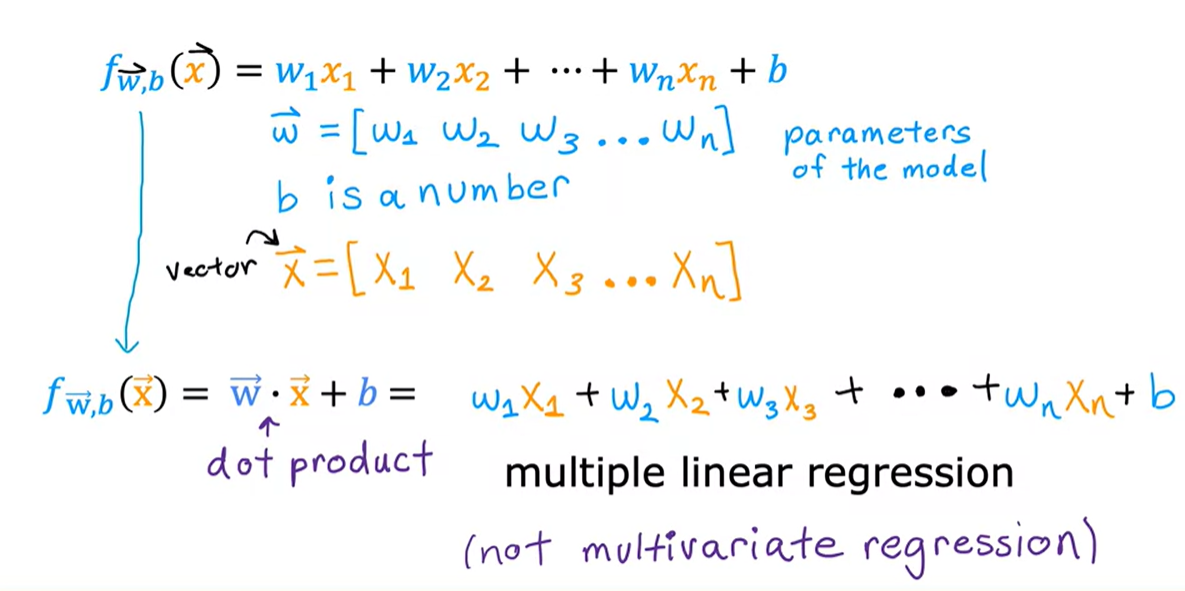 f_{\vec{w},b}(\vec{x}) = w_1x_1 + w_2x_2 + ⋯ + w_nx_n + b
\vec{w} = [w_1 w_2 w_3 ... w_n] parameters
of the model
b is a number
vector \vec{x} = [x_1 x_2 x_3 ... x_n]
f_{\vec{w},b}(\vec{x}) = \vec{w} · \vec{x} + b = w_1x_1 + w_2x_2 + w_3x_3 + ••• + w_nx_n + b
dot product
multiple linear regression
(not multivariate regression)